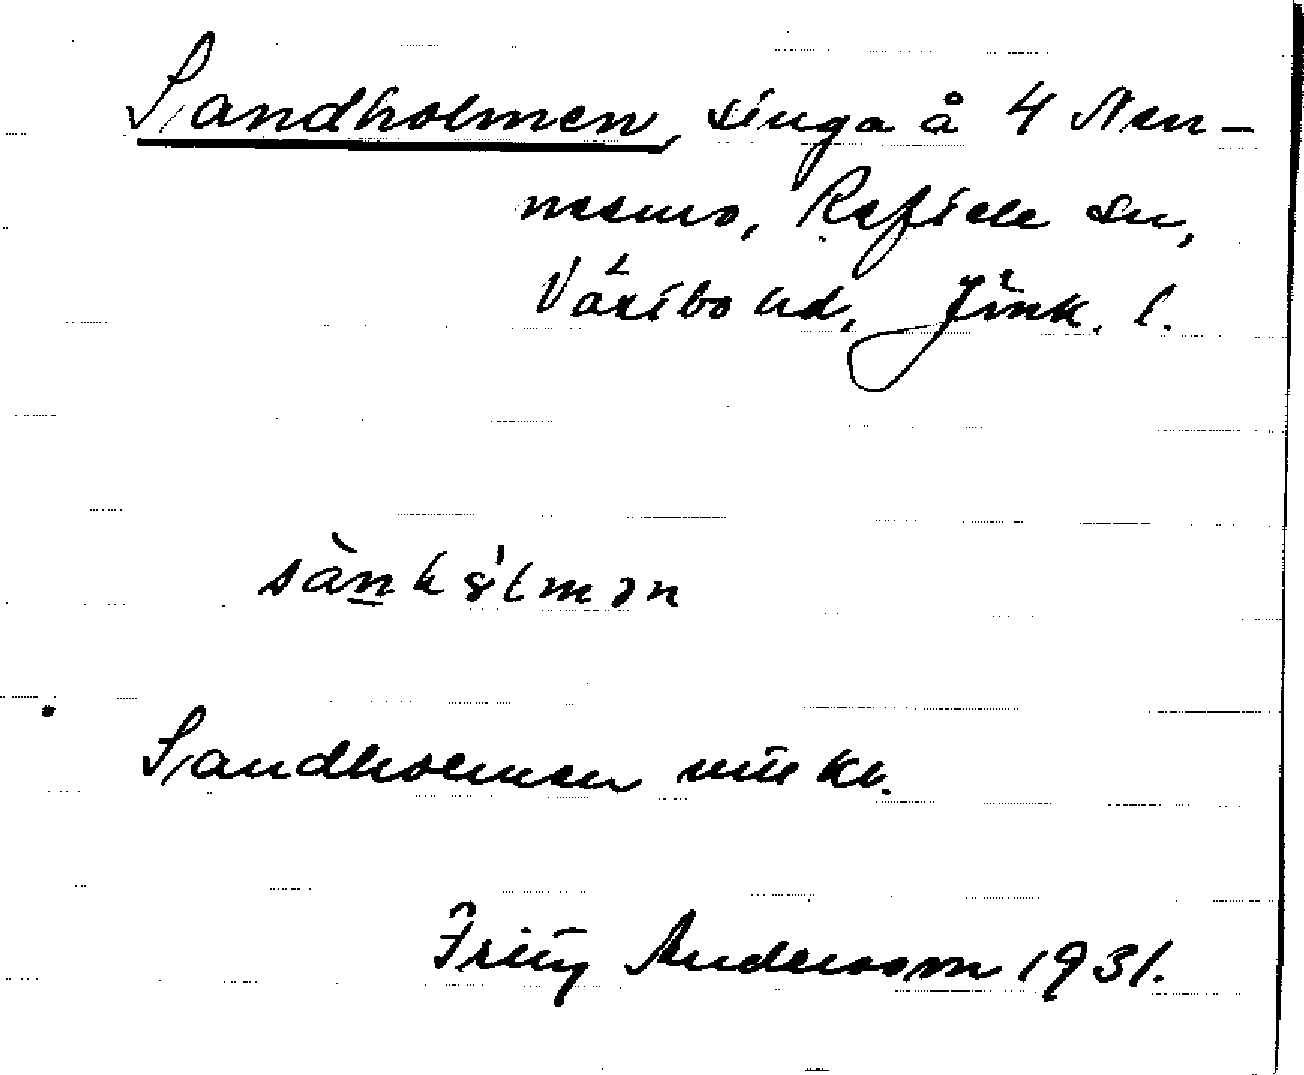 Sandholmen, å 4 Nen-
nesmo, Reftele sn,
Västbo hd, Jönk. l.
sànhål̀mən
Sandholmen
Fritz Andersson 1931.